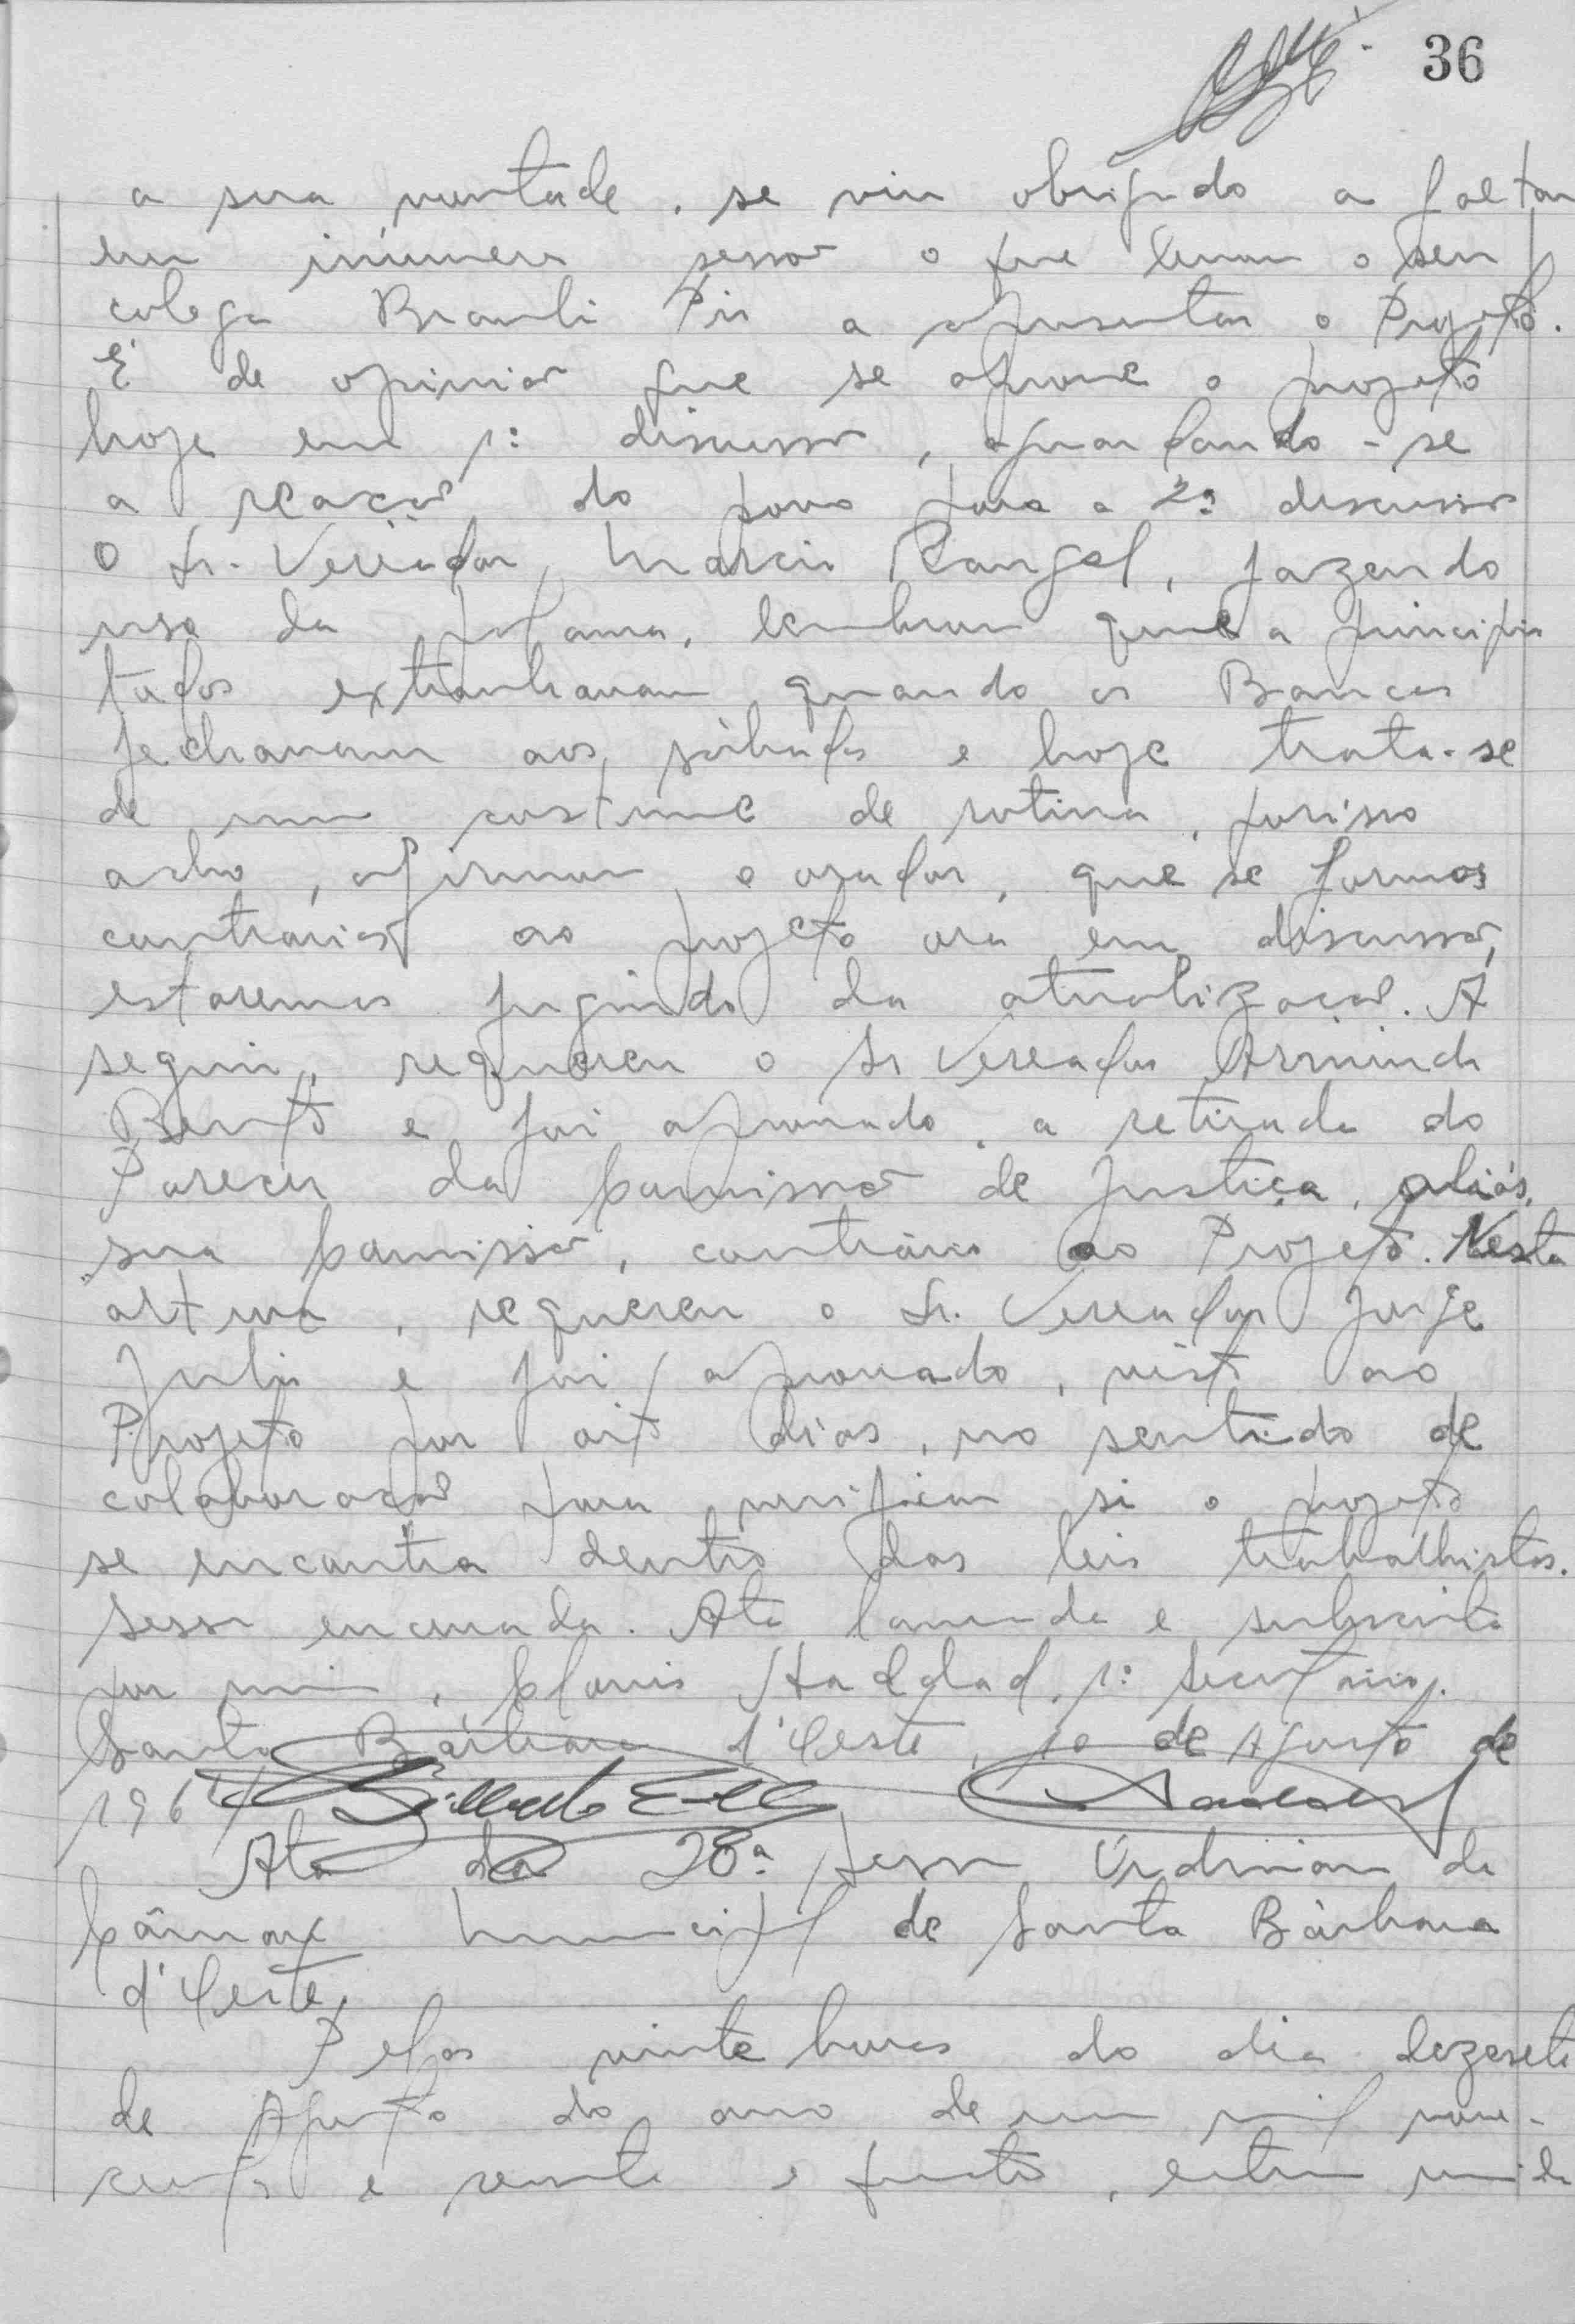 36
a sua vontade, se viu obrigado a faltar
em inúmeras sessões o que levou o seu
colega Braulio Pio a apresentar o Projeto.
É de opinião que se aprove o projeto
hoje em 1ª discussão, aguardando-se
a reação do povo para a 2ª discussão
O Sr. Vereador, Marcio Rangel, fazendo
uso da palavra, lembrou que a principio
todos extranhavam quando os Bancos
fechavam aos sábados e hoje trata-se
de um costume de rotina, porisso
acho, afirmou o orador, que se formos
contrários ao projeto ora em discussão,
estaremos fugindo da atualização. A
seguir, requereu o Sr Vereador Armindo
Bento e foi aprovado, a retirada do
Parecer da Comissão de Justiça, aliás,
sua Comissão, contrário ao Projeto. Nesta
altura, requereu o Sr. Vereador Jorge
Julio e foi aprovado, vista ao
Projeto por oito dias, no sentido de
colaboração para verificar si o projeto
se encontra dentro das leis trabalhistas.
Sessão encerrada. Ata lavrada e subscrita
por mim, Clovis Haddad, 1º Secretario.
Santa Bárbara d'Oeste, 10 de Agosto de
1964
Ata da 28ª Sessão Ordinaria da
Câmara Municipal de Santa Bárbara
d'Oeste.
Pelas vinte horas do dia dezesete
de Agosto do ano de um mil nove-
centos e sessenta e quatro, esteve reunida